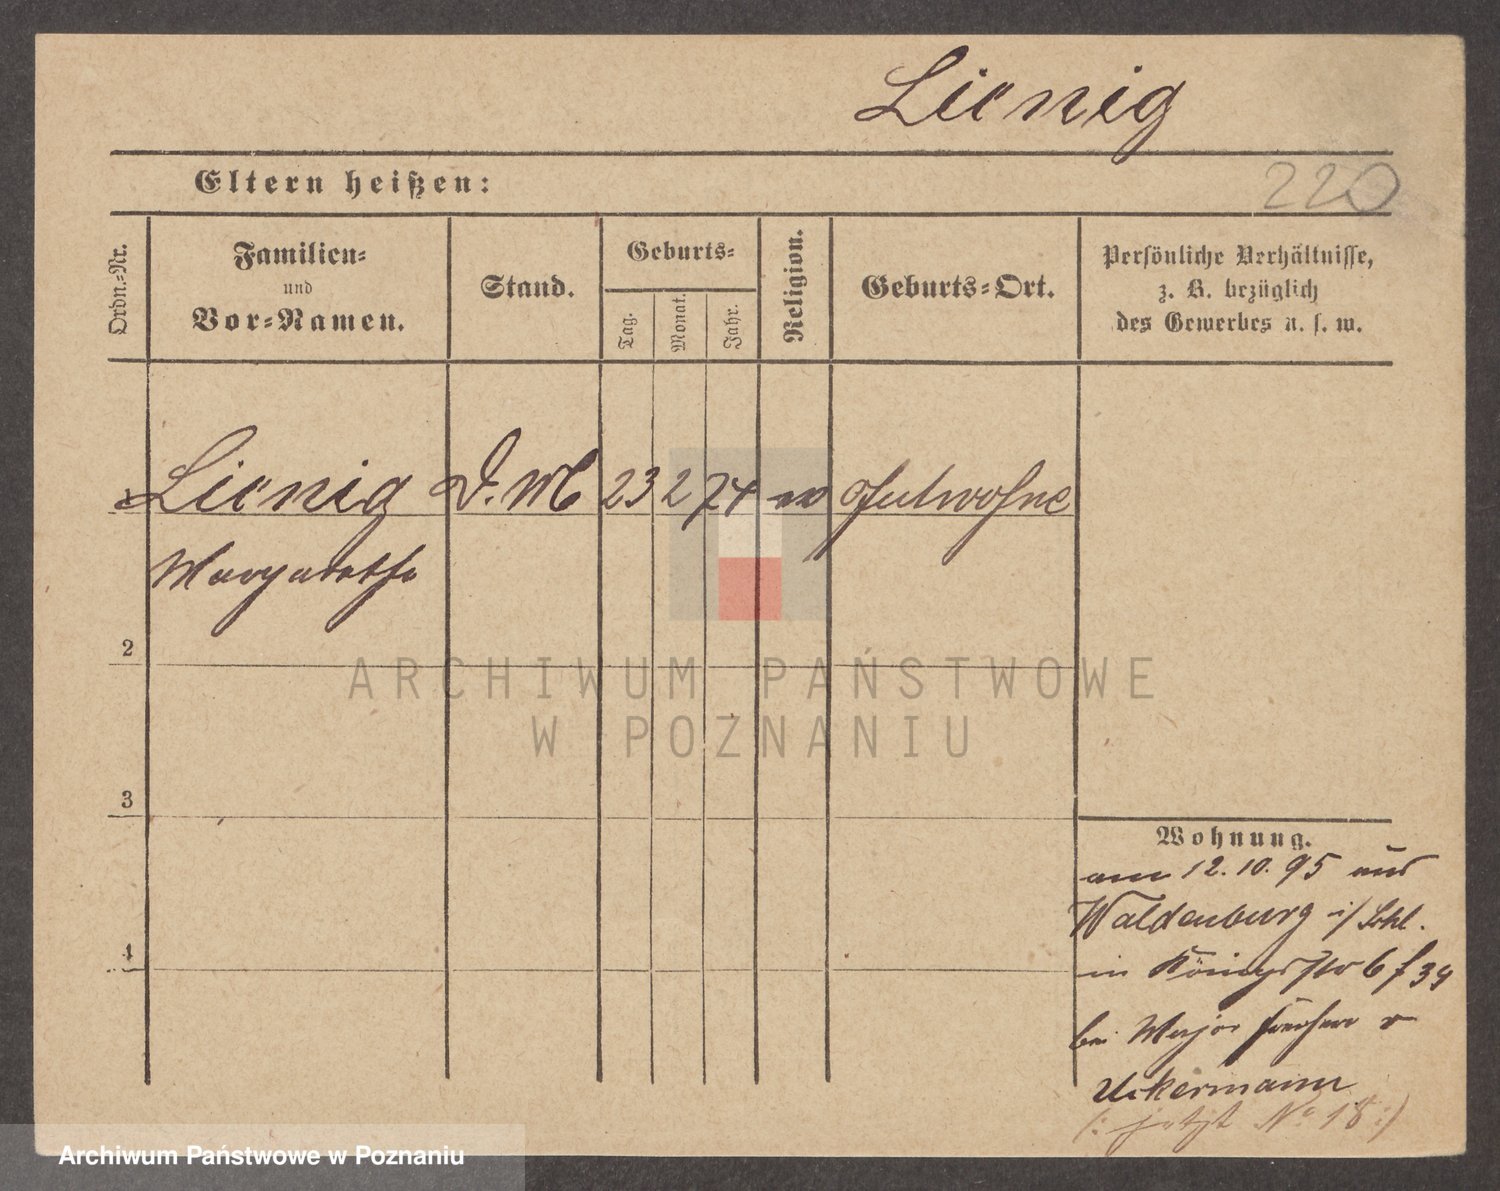 Lienig
Eltern heißen:
220
Ordn.=Nr.
Familien=
und
Vor=Namen.
Stand.
Geburts=
Tag.
Monat.
Jahr.
Religion.
Geburts=Ort.
Persönliche Verhältnisse,
z. B. bezüglich
des Gewerbes u. s. w.
1 Lienig D. M 23 2 74 ev
Margarethe
2
3
4
Wohnung.
am 12. 10. 95 aus
Waldenburg i/Schl.
in Königsstr 6 f 34
bei Major Freiherr v
Uckermann
(: jetzt No 18 :)
ARCHIWUM PAŃSTWOWE
W POZNANIU
Archiwum Państwowe w Poznaniu